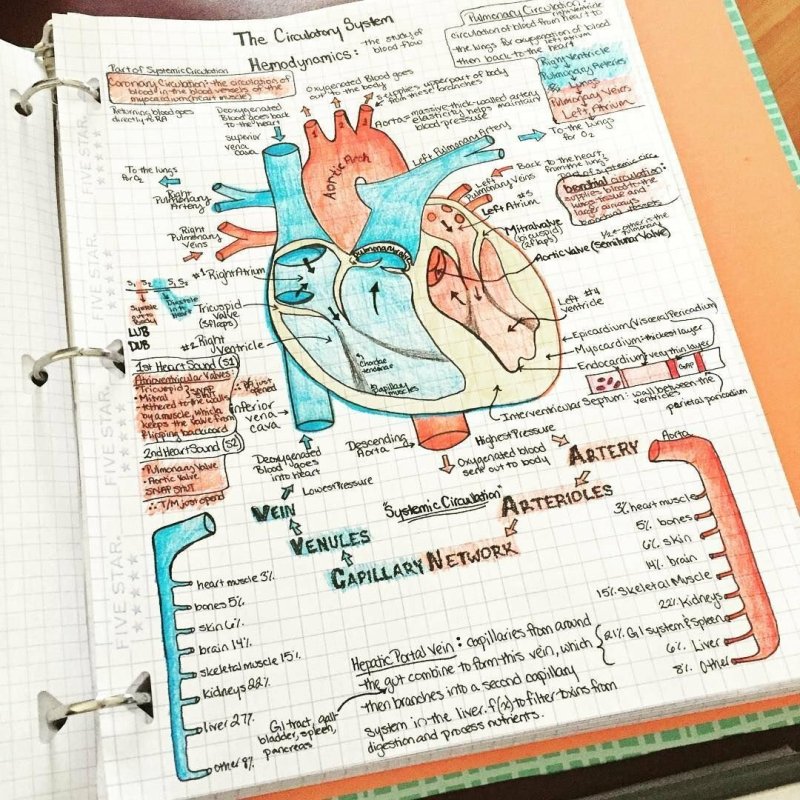 The Circulatory System
Hemodynamics: the study of
blood flow
Pulmonary Circulation:
right ventricle
circulation of blood from heart to
the lungs for oxygenation of blood
left atrium
then back to the heart
Right Ventricle
Pulmonary Arteries
Lungs
Pulmonary Veins
Left Atrium
Part of Systemic Circulation
Coronary Circulation - the circulation of
blood in the blood vessels of the
myocardium (heart muscle)
Returning blood goes
directly to RA
Deoxygenated
Blood goes
back to
the heart
superior
vena
cava
Oxygenated Blood goes
out to the body
supplies upper part of body
from these branches
Aorta - massive thick-walled artery
elasticity helps maintain
blood pressure
1
2
3
Aortic Arch
Left Pulmonary Artery
To the lungs
for O2
To the lungs
for O2
Right
Pulmonary
Artery
Right
Pulmonary
Veins
Back to the heart
from the lungs
Left
Pulmonary Veins
#3
Left Atrium
Part of systemic circ.
bronchial circulation:
supplies blood to the
lungs tissue and
larger airways
bronchial vessels
Mitral valve
(bicuspid)
(2 flaps)
Aortic Valve (semilunar valve)
Pulmonary valve
S1 S2 S1 S2
Systole
out to
Body
Diastole
into
Heart
LUB
DUB
#1 Right Atrium
Tricuspid
Valve
(3 flaps)
#2 Right
Ventricle
Chordae
tendinae
Papillary
muscles
Left #4
Ventricle
Epicardium (Visceral Pericardium)
Myocardium - thickest layer
Endocardium - very thin layer
Interventricular Septum: wall between the
ventricles
parietal pericardium
1st Heart Sound (S1)
Atrioventricular Valves
• Tricuspid
• Mitral
SNAP
SHUT
tethered to the walls
by a muscle, which
keeps the valve from
flipping backward
2nd Heart Sound (S2)
• Pulmonary Valve
• Aortic Valve
SNAP SHUT
∴ T/M just opened
inferior
vena
cava
Deoxygenated
Blood goes
into heart
Descending
Aorta
Oxygenated blood
sent out to body
Highest Pressure
Lowest Pressure
"Systemic Circulation"
Artery
Arterioles
Capillary Network
Venules
Vein
Aorta
3% heart muscle
5% bones
6% skin
14% brain
15% Skeletal Muscle
22% Kidneys
21% GI system & Spleen
6% Liver
8% Other
heart muscle 3%
bones 5%
skin 6%
brain 14%
skeletal muscle 15%
kidneys 22%
liver 27%
other 8%
GI tract, gall
bladder, spleen,
pancreas
Hepatic Portal Vein: capillaries from around
the gut combine to form this vein, which
then branches into a second capillary
system in the liver. f(x) to filter toxins from
digestion and process nutrients.
FIVE STAR.
FIVE STAR.
FIVE STAR.